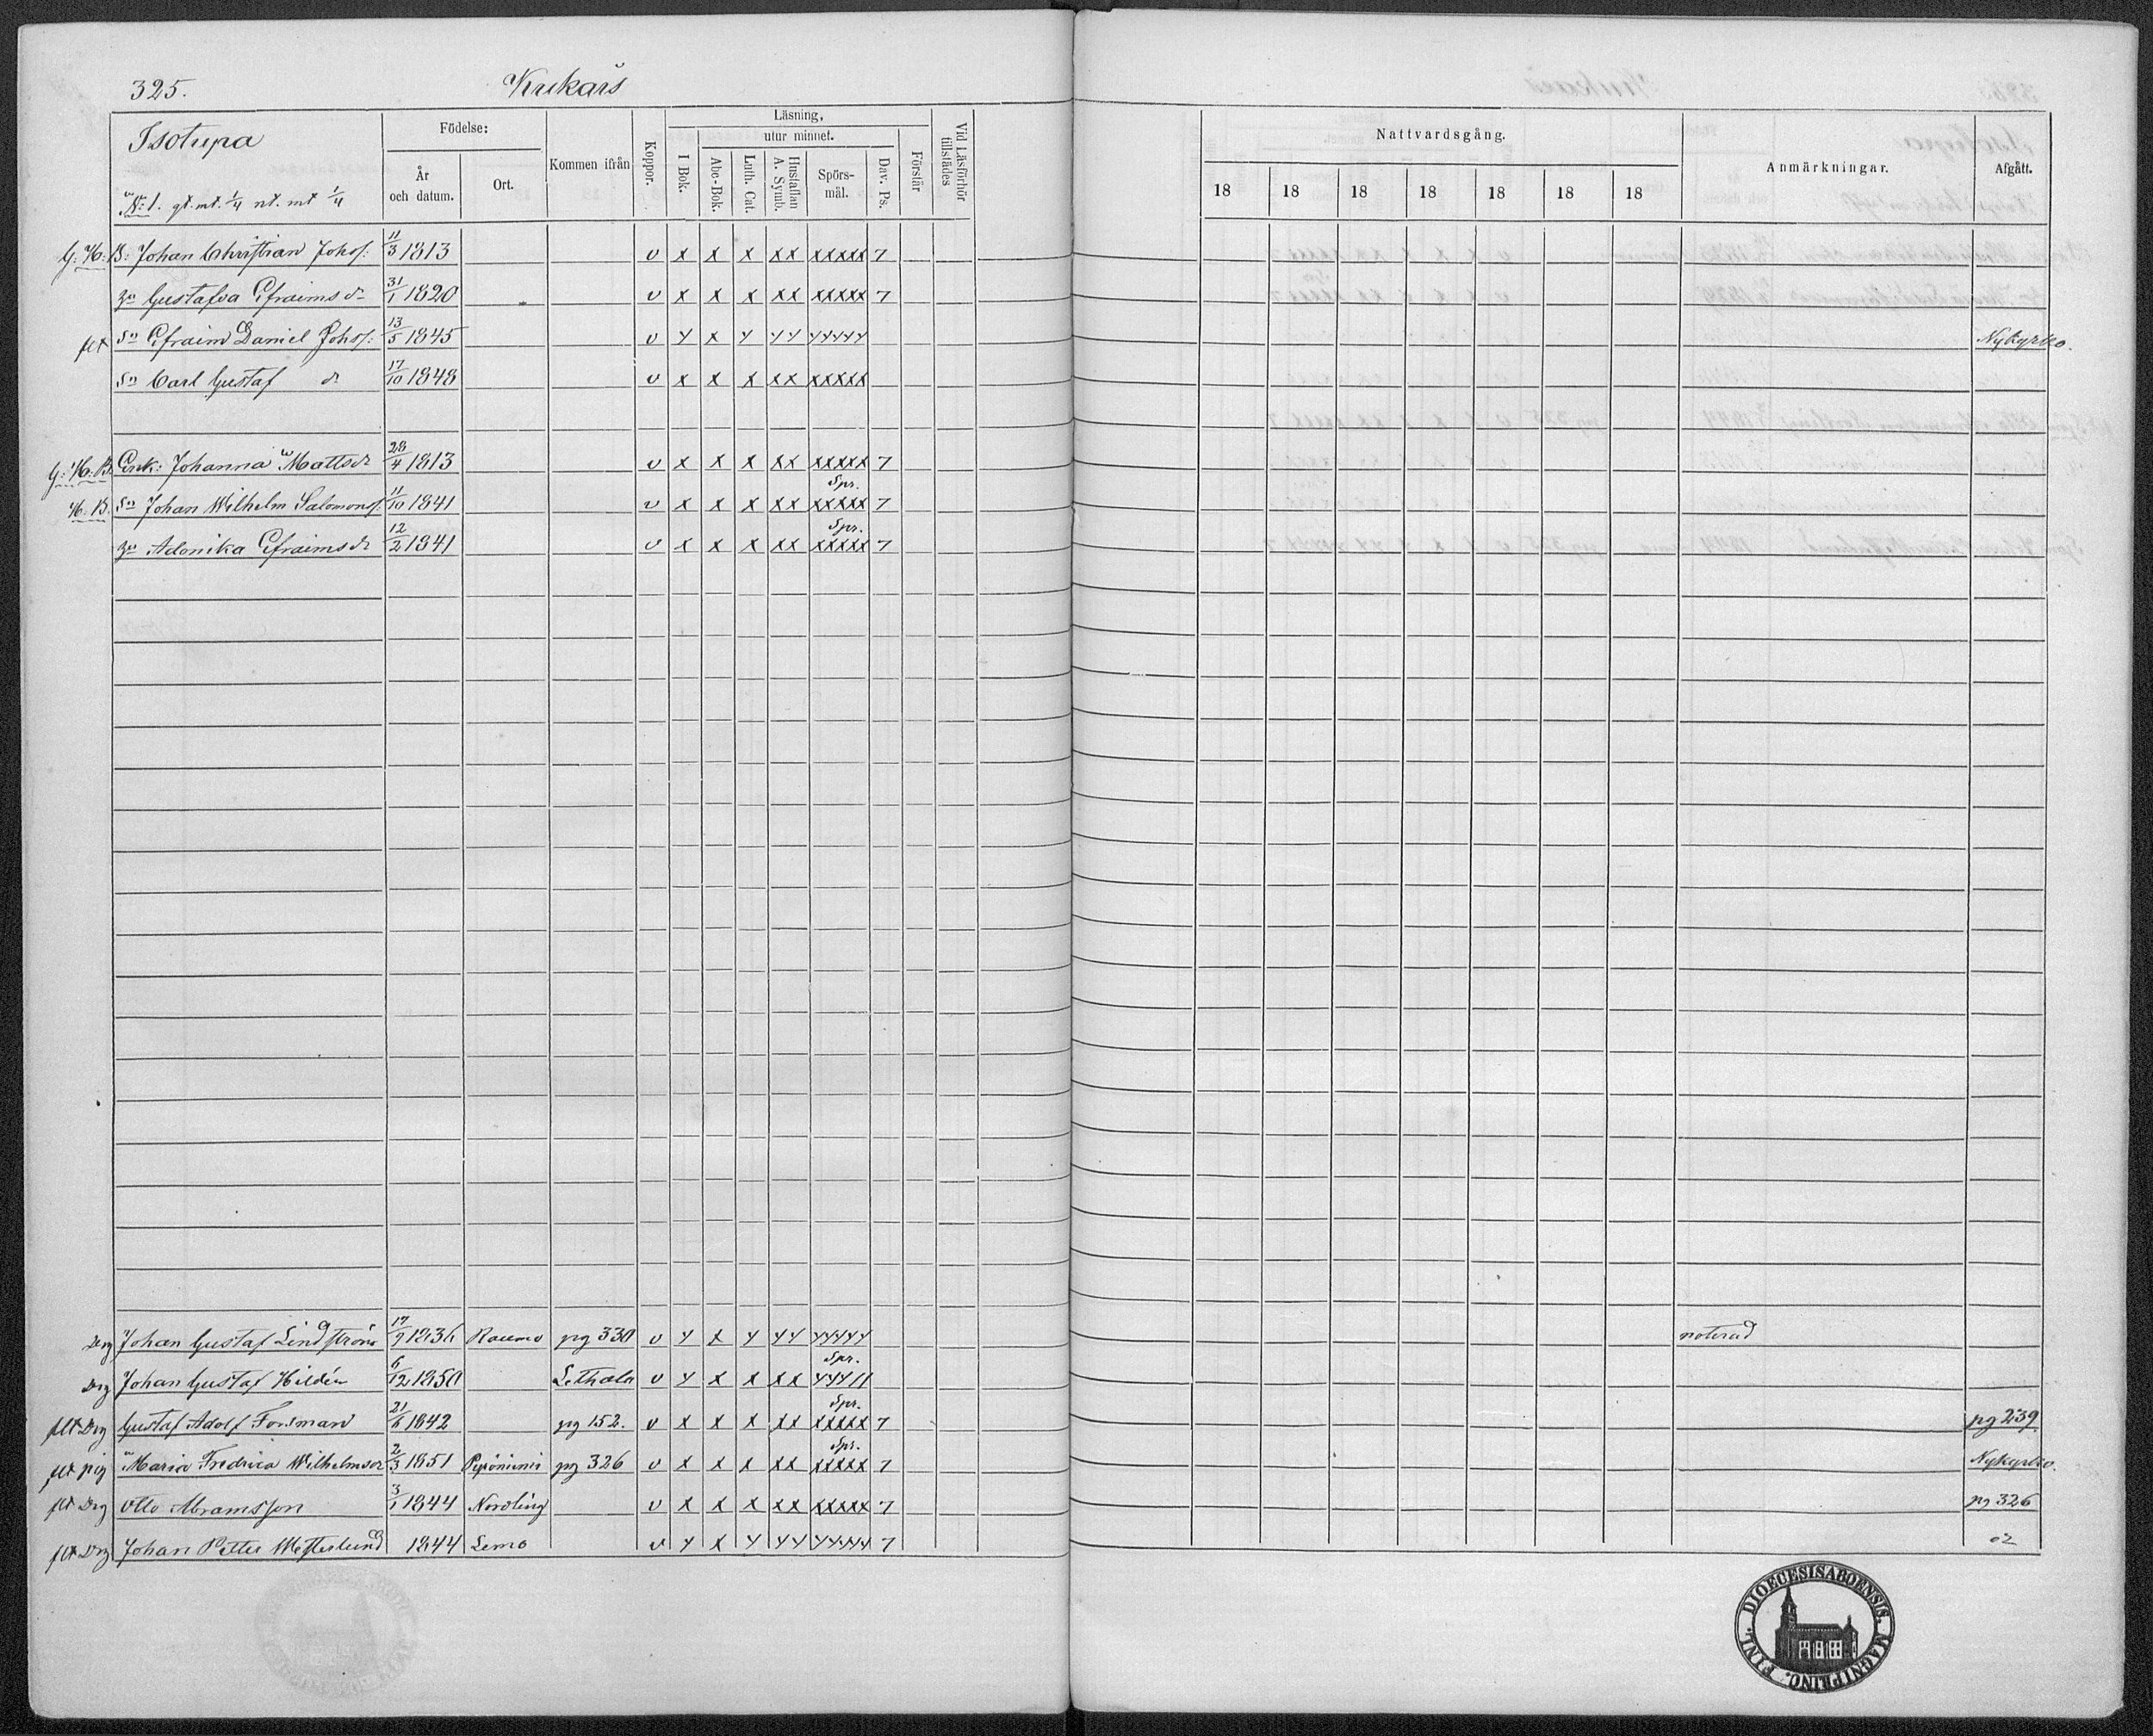 325. Krukars
Isotupa
No: 1. gt. mt. 1/4 nt. mt 1/4
Födelse:
År och datum.
Ort.
Kommen ifrån
Koppor.
Läsning,
utur minnet.
I Bok.
Abc-Bok.
Luth. Cat.
Hustaflan A. Symb.
Spörs-mål.
Dav. Ps.
Förstår
Vid Läsförhör tillstädes
Nattvardsgång.
18 18 18 18 18 18 18
Anmärkningar.
Afgått.
G: H: B: Johan Christian Johss: 11/3 1813 v x x x xx xxxxx 7
Gustafva Efraims dr 31/1 1820 v x x x xx xxxxx 7
flt Sn Efraim Daniel Johss: 13/5 1845 v y x y yy yyyyy Nykyrko.
Sn Carl Gustaf dr 17/10 1848 v x x x xx xxxxx
G: H. B: Enk: Johanna Matts dr 28/4 1813 v x x x xx xxxxx 7
H. B. Sn Johan Wilhelm Salomons. 11/10 1841 v x x x xx Spr. xxxxx 7
Adonika Efraims dr 12/2 1841 v x x x xx Spr. xxxxx 7
Drg Johan Gustaf Lindström 17/9 1836 Raumo pg 330 v y x y yy yyyyy noterad
Drg Johan Gustaf Hildén 6/12 1850 Lethala v y x x xx Spr. yyy11
flt Drg Gustaf Adolf Forsman 21/6 1842 pg 152. v x x x xx Spr. xxxxx 7 pg 239
flt pig Maria Fredrica Wilhelms dr 2/3 1851 pg 326 v x x x xx Spr. xxxxx 7 Nykyrko.
flt Drg Otto Abramsson 3/1 1844 Nordling v x x x xx xxxxx 7 pg 326
flt Drg Johan Petter Westerlund 1844 Lemo v y x y yy yyyyy 7
DIOECESISABOENSIS. MAGNI PRINC. FINL.